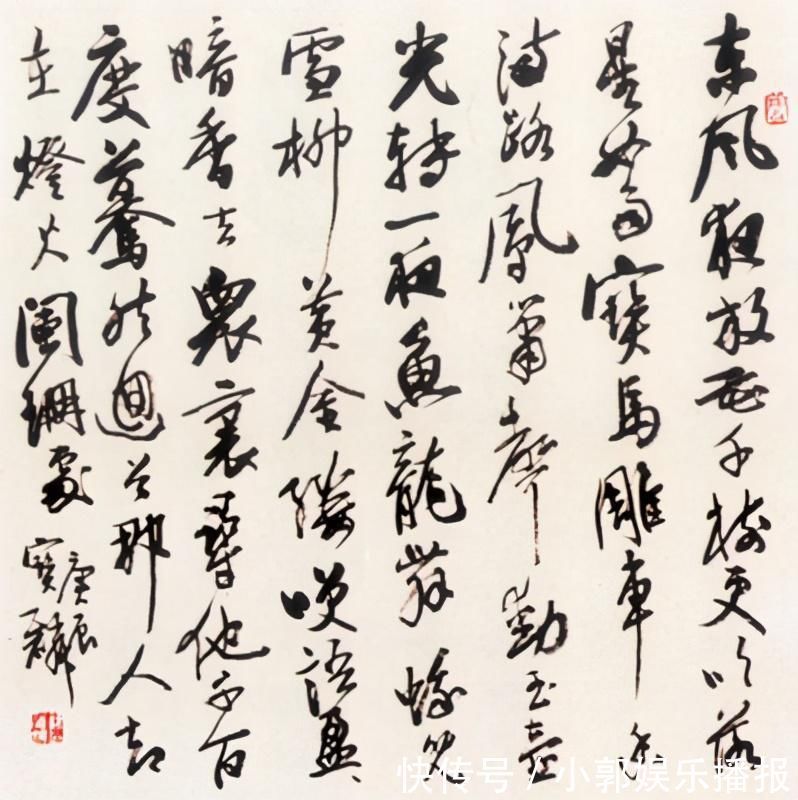 東風夜放花千樹更吹落
星如雨寶馬雕車香
滿路鳳簫聲動玉壺
光轉一夜魚龍舞蛾兒
雪柳黃金縷笑語盈
暗香去眾裏尋他千百
度驀然迴首那人却
在燈火闌珊處
庚辰
寶麟
快传号 / 小郭娱乐播报